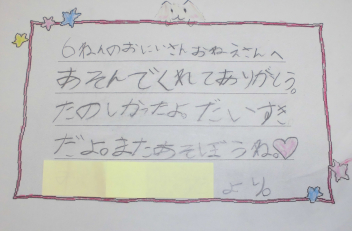 6ねんのおにいさんおねえさんへ
あそんでくれてありがとう。
たのしかったよ。だいすき
だよ。またあそぼうね。
より。